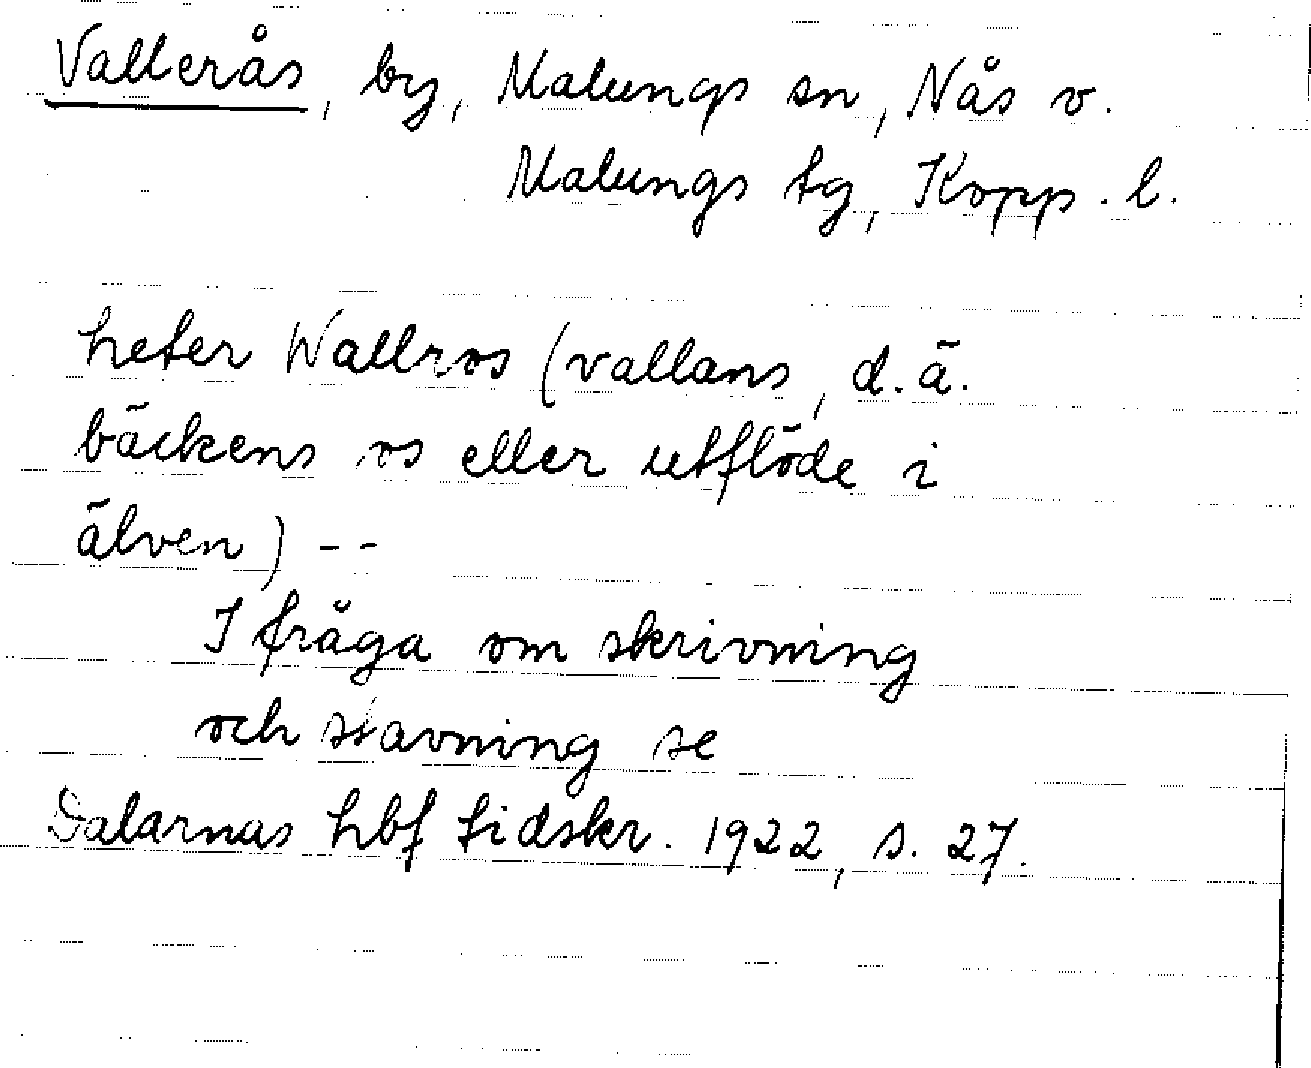 Vallerås, by, Malungs sn, Nås v.
Malungs tg, Kopp. l.
heter Wallros (vallans, d.ä.
bäckens os eller utflöde i
älven) --
I fråga om skrivning
och stavning se
Dalarnas hbf tidskr. 1922, s. 27.